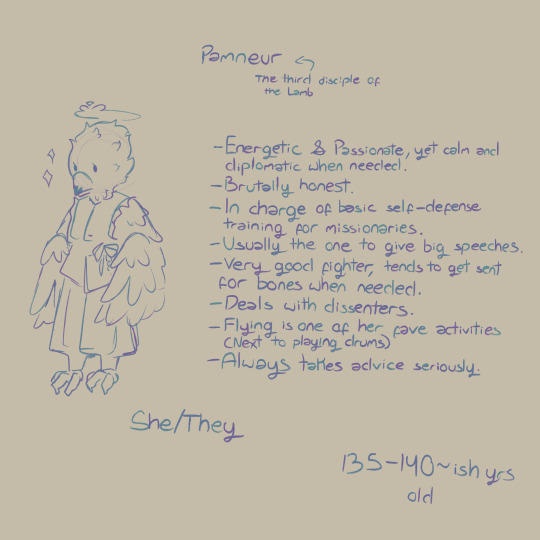 Pamneur
The third disciple of
the Lamb
-Energetic & Passionate, yet calm and
diplomatic when needed.
-Brutally honest.
-In charge of basic self-defense
training for missionaries.
-Usually the one to give big speeches.
-Very good fighter, tends to get sent
for bones when needed.
-Deals with dissenters.
-Flying is one of her fave activities
(Next to playing drums)
-Always takes advice seriously.
She/They
135-140~ish yrs
old